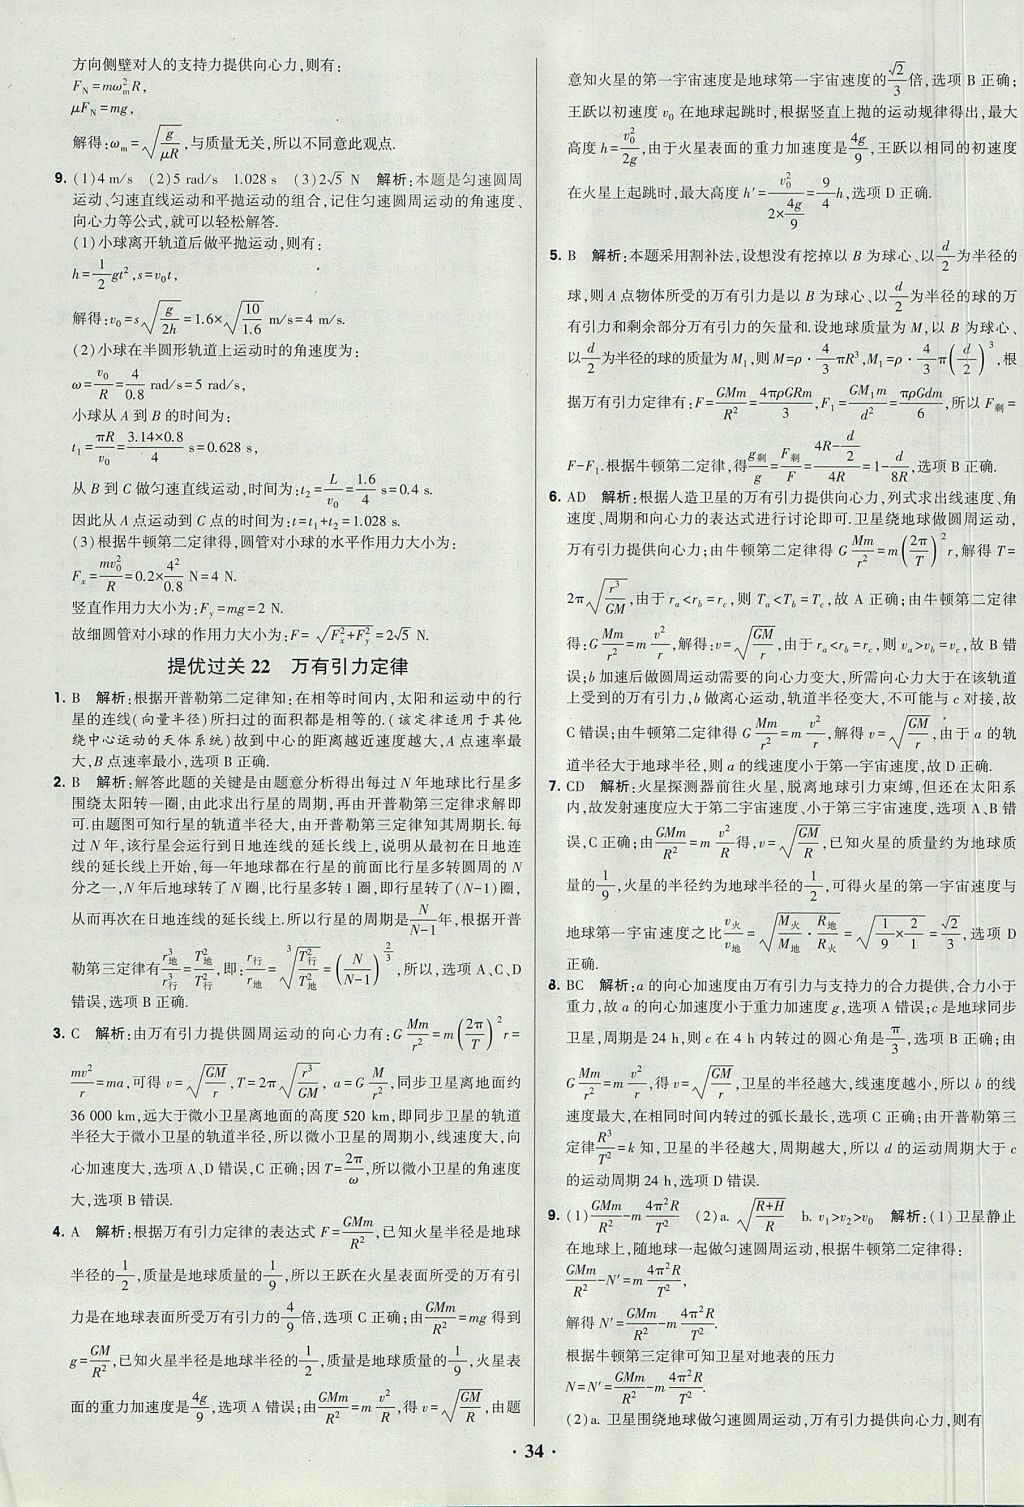 方向侧壁对人的支持力提供向心力,则有:
F_N=mω_m²R,
μF_N=mg,
解得:ω_m=√(g/μR),与质量无关,所以不同意此观点.
9. (1)4 m/s (2)5 rad/s 1.028 s (3)2√5 N 解析:本题是匀速圆周
运动、匀速直线运动和平抛运动的组合,记住匀速圆周运动的角速度、
向心力等公式,就可以轻松解答.
(1)小球离开轨道后做平抛运动,则有:
h=1/2 gt²,s=v₀t,
解得:v₀=s√(g/2h)=1.6×√(10/1.6) m/s=4 m/s.
(2)小球在半圆形轨道上运动时的角速度为:
ω=v₀/R=4/0.8 rad/s=5 rad/s,
小球从 A 到 B 的时间为:
t₁=πR/v₀=3.14×0.8/4 s=0.628 s,
从 B 到 C 做匀速直线运动,时间为:t₂=L/v₀=1.6/4 s=0.4 s.
因此从 A 点运动到 C 点的时间为:t=t₁+t₂=1.028 s.
(3)根据牛顿第二定律得,圆管对小球的水平作用力大小为:
F_x=mv₀²/R=0.2×4²/0.8 N=4 N.
竖直作用力大小为:F_y=mg=2 N.
故细圆管对小球的作用力大小为:F=√(F_x²+F_y²)=2√5 N.
提优过关 22 万有引力定律
1. B 解析:根据开普勒第二定律知:在相等时间内,太阳和运动中的行
星的连线(向量半径)所扫过的面积都是相等的.(该定律适用于其他
绕中心运动的天体系统)故到中心的距离越近速度越大,A 点速率最
大,B 点速率最小,选项 B 正确.
2. B 解析:解答此题的关键是由题意分析得出每过 N 年地球比行星多
围绕太阳转一圈,由此求出行星的周期,再由开普勒第三定律求解即
可.由题图可知行星的轨道半径大,由开普勒第三定律知其周期长.每
过 N 年,该行星会运行到日地连线的延长线上,说明从最初在日地连
线的延长线上开始,每一年地球都在行星的前面比行星多转圆周的 N
分之一,N 年后地球转了 N 圈,比行星多转 1 圈,即行星转了(N-1)圈,
从而再次在日地连线的延长线上.所以行星的周期是N/(N-1)年,根据开普
勒第三定律有r地³/r行³=T地²/T行²,即:r行/r地=³√(T行²/T地²)=(N/(N-1))^(2/3),所以,选项 A、C、D
错误,选项 B 正确.
3. C 解析:由万有引力提供圆周运动的向心力有:G Mm/r²=m(2π/T)²r=
mv²/r=ma,可得 v=√(GM/r),T=2π√(r³/GM),a=G M/r²,同步卫星离地面约
36 000 km,远大于微小卫星离地面的高度 520 km,即同步卫星的轨道
半径大于微小卫星的轨道半径,所以微小卫星的周期小,线速度大,向
心加速度大,选项 A、D 错误,C 正确;因 T=2π/ω,所以微小卫星的角速度
大,选项 B 错误.
4. A 解析:根据万有引力定律的表达式 F=GMm/R²,已知火星半径是地球
半径的1/2,质量是地球质量的1/9,所以王跃在火星表面所受的万有引
力是在地球表面所受万有引力的4/9倍,选项 C 正确;由GMm/R²=mg 得到
g=GM/R²,已知火星半径是地球半径的1/2,质量是地球质量的1/9,火星表
面的重力加速度是4g/9,选项 A 错误;由GMm/R²=m v²/R,得 v=√(GM/R),由题
意知火星的第一宇宙速度是地球第一宇宙速度的√2/3倍,选项 B 正确;
王跃以初速度 v₀ 在地球起跳时,根据竖直上抛的运动规律得出,最大
高度 h=v₀²/2g,由于火星表面的重力加速度是4g/9,王跃以相同的初速度
在火星上起跳时,最大高度 h′=v₀²/(2×4g/9)=9/4 h,选项 D 正确.
5. B 解析:本题采用割补法,设想没有挖掉以 B 为球心、以d/2为半径的
球,则 A 点物体所受的万有引力是以 B 为球心、以d/2为半径的球的万
有引力和剩余部分万有引力的矢量和.设地球质量为 M,以 B 为球心、
以d/2为半径的球的质量为 M₁,则 M=ρ·4/3 πR³,M₁=ρ·4/3 π(d/2)³,根
据万有引力定律有:F=GMm/R²=4πρGRm/3,F₁=GM₁m/d²=πρGdm/6,所以 F剩=
F-F₁.根据牛顿第二定律,得g剩/g=F剩/F=(4R-d/2)/4R=1-d/8R,选项 B 正确.
6. AD 解析:根据人造卫星的万有引力提供向心力,列式求出线速度、角
速度、周期和向心力的表达式进行讨论即可.卫星绕地球做圆周运动,
万有引力提供向心力;由牛顿第二定律得 G Mm/r²=m(2π/T)²r,解得 T=
2π√(r³/GM),由于 r_a<r_b=r_c,则 T_a<T_b=T_c,故 A 正确;由牛顿第二定律
得:G Mm/r²=m v²/r,解得:v=√(GM/r),由于 r_a<r_b=r_c,则 v_a>v_b=v_c,故 B 错
误;b 加速后做圆周运动需要的向心力变大,所需向心力大于在该轨道
上受到的万有引力,b 做离心运动,轨道半径变大,不可能与 c 对接,故
C 错误;由牛顿第二定律得 G Mm/r²=m v²/r,解得 v=√(GM/r),由于 a 的轨
道半径大于地球半径,则 a 的线速度小于第一宇宙速度,故 D 正确.
7. CD 解析:火星探测器前往火星,脱离地球引力束缚,但还在太阳系
内,故发射速度应大于第二宇宙速度、小于第三宇宙速度,选项 A、B 错
误,C 正确;由GMm/R²=m v²/R得,v=√(GM/R),已知火星的质量约为地球质
量的1/9,火星的半径约为地球半径的1/2,可得火星的第一宇宙速度与
地球第一宇宙速度之比v火/v地=√(M火/M地·R地/R火)=√(1/9×2/1)=√2/3,选项 D
正确.
8. BC 解析:a 的向心加速度由万有引力与支持力的合力提供,合力小于
重力,故 a 的向心加速度小于重力加速度 g,选项 A 错误;c 是地球同步
卫星,周期是 24 h,则 c 在 4 h 内转过的圆心角是π/3,选项 B 正确;由
G Mm/r²=m v²/r,得 v=√(GM/r),卫星的半径越大,线速度越小,所以 b 的线
速度最大,在相同时间内转过的弧长最长,选项 C 正确;由开普勒第三
定律R³/T²=k 知,卫星的半径越大,周期越大,所以 d 的运动周期大于 c
的运动周期 24 h,选项 D 错误.
9. (1)GMm/R²-m 4π²R/T² (2)a. √((R+H)/R) b. v₁>v₂>v₀ 解析:(1)卫星静止
在地球上,随地球一起做匀速圆周运动,根据牛顿第二定律得:
GMm/R²-N′=m 4π²R/T²,
解得 N′=GMm/R²-m 4π²R/T².
根据牛顿第三定律可知卫星对地表的压力
N=N′=GMm/R²-m 4π²R/T².
(2)a. 卫星围绕地球做匀速圆周运动,万有引力提供向心力,则有
· 34 ·